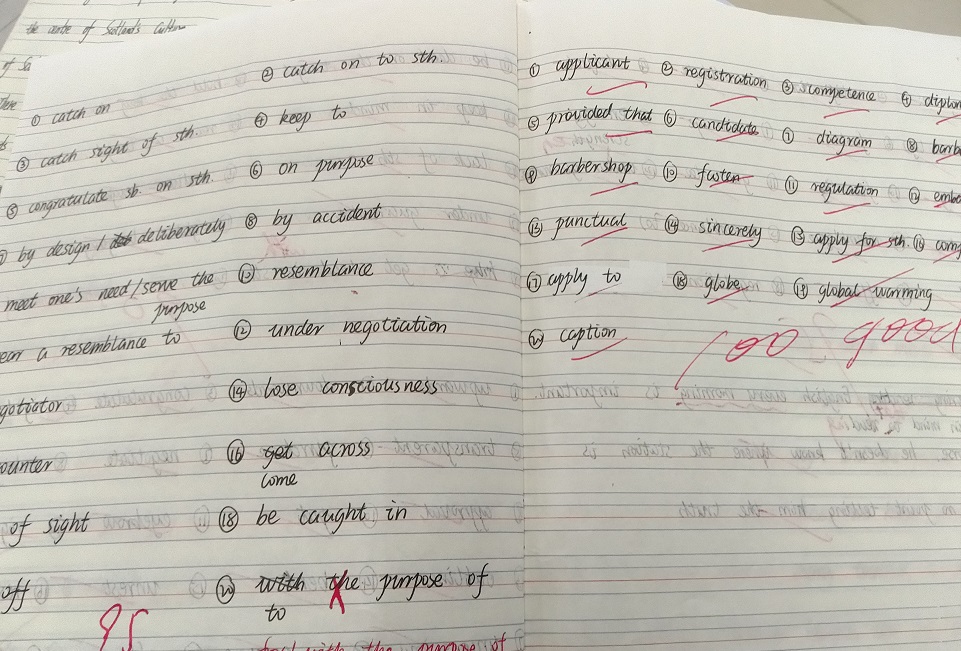 the centre of Scotland's
① catch on
② catch on to sth.
③ catch sight of sth.
④ keep to
⑤ congratulate sb. on sth.
⑥ on purpose
by design / deliberately
⑧ by accident
meet one's need/serve the
purpose
⑩ resemblance
a resemblance to
⑫ under negotiation
⑭ lose consciousness
⑯ get across
come
of sight
⑱ be caught in
off
⑳ with the purpose of
to
95
with the purpose of
① applicant ② registration ③ competence ④
⑤ provided that ⑥ candidate ⑦ diagram ⑧
⑨ barbershop ⑩ fasten ⑪ regulation ⑫
⑬ punctual ⑭ sincerely ⑮ apply for sth. ⑯
⑰ apply to ⑱ globe ⑲ global warming
⑳ caption
100 good